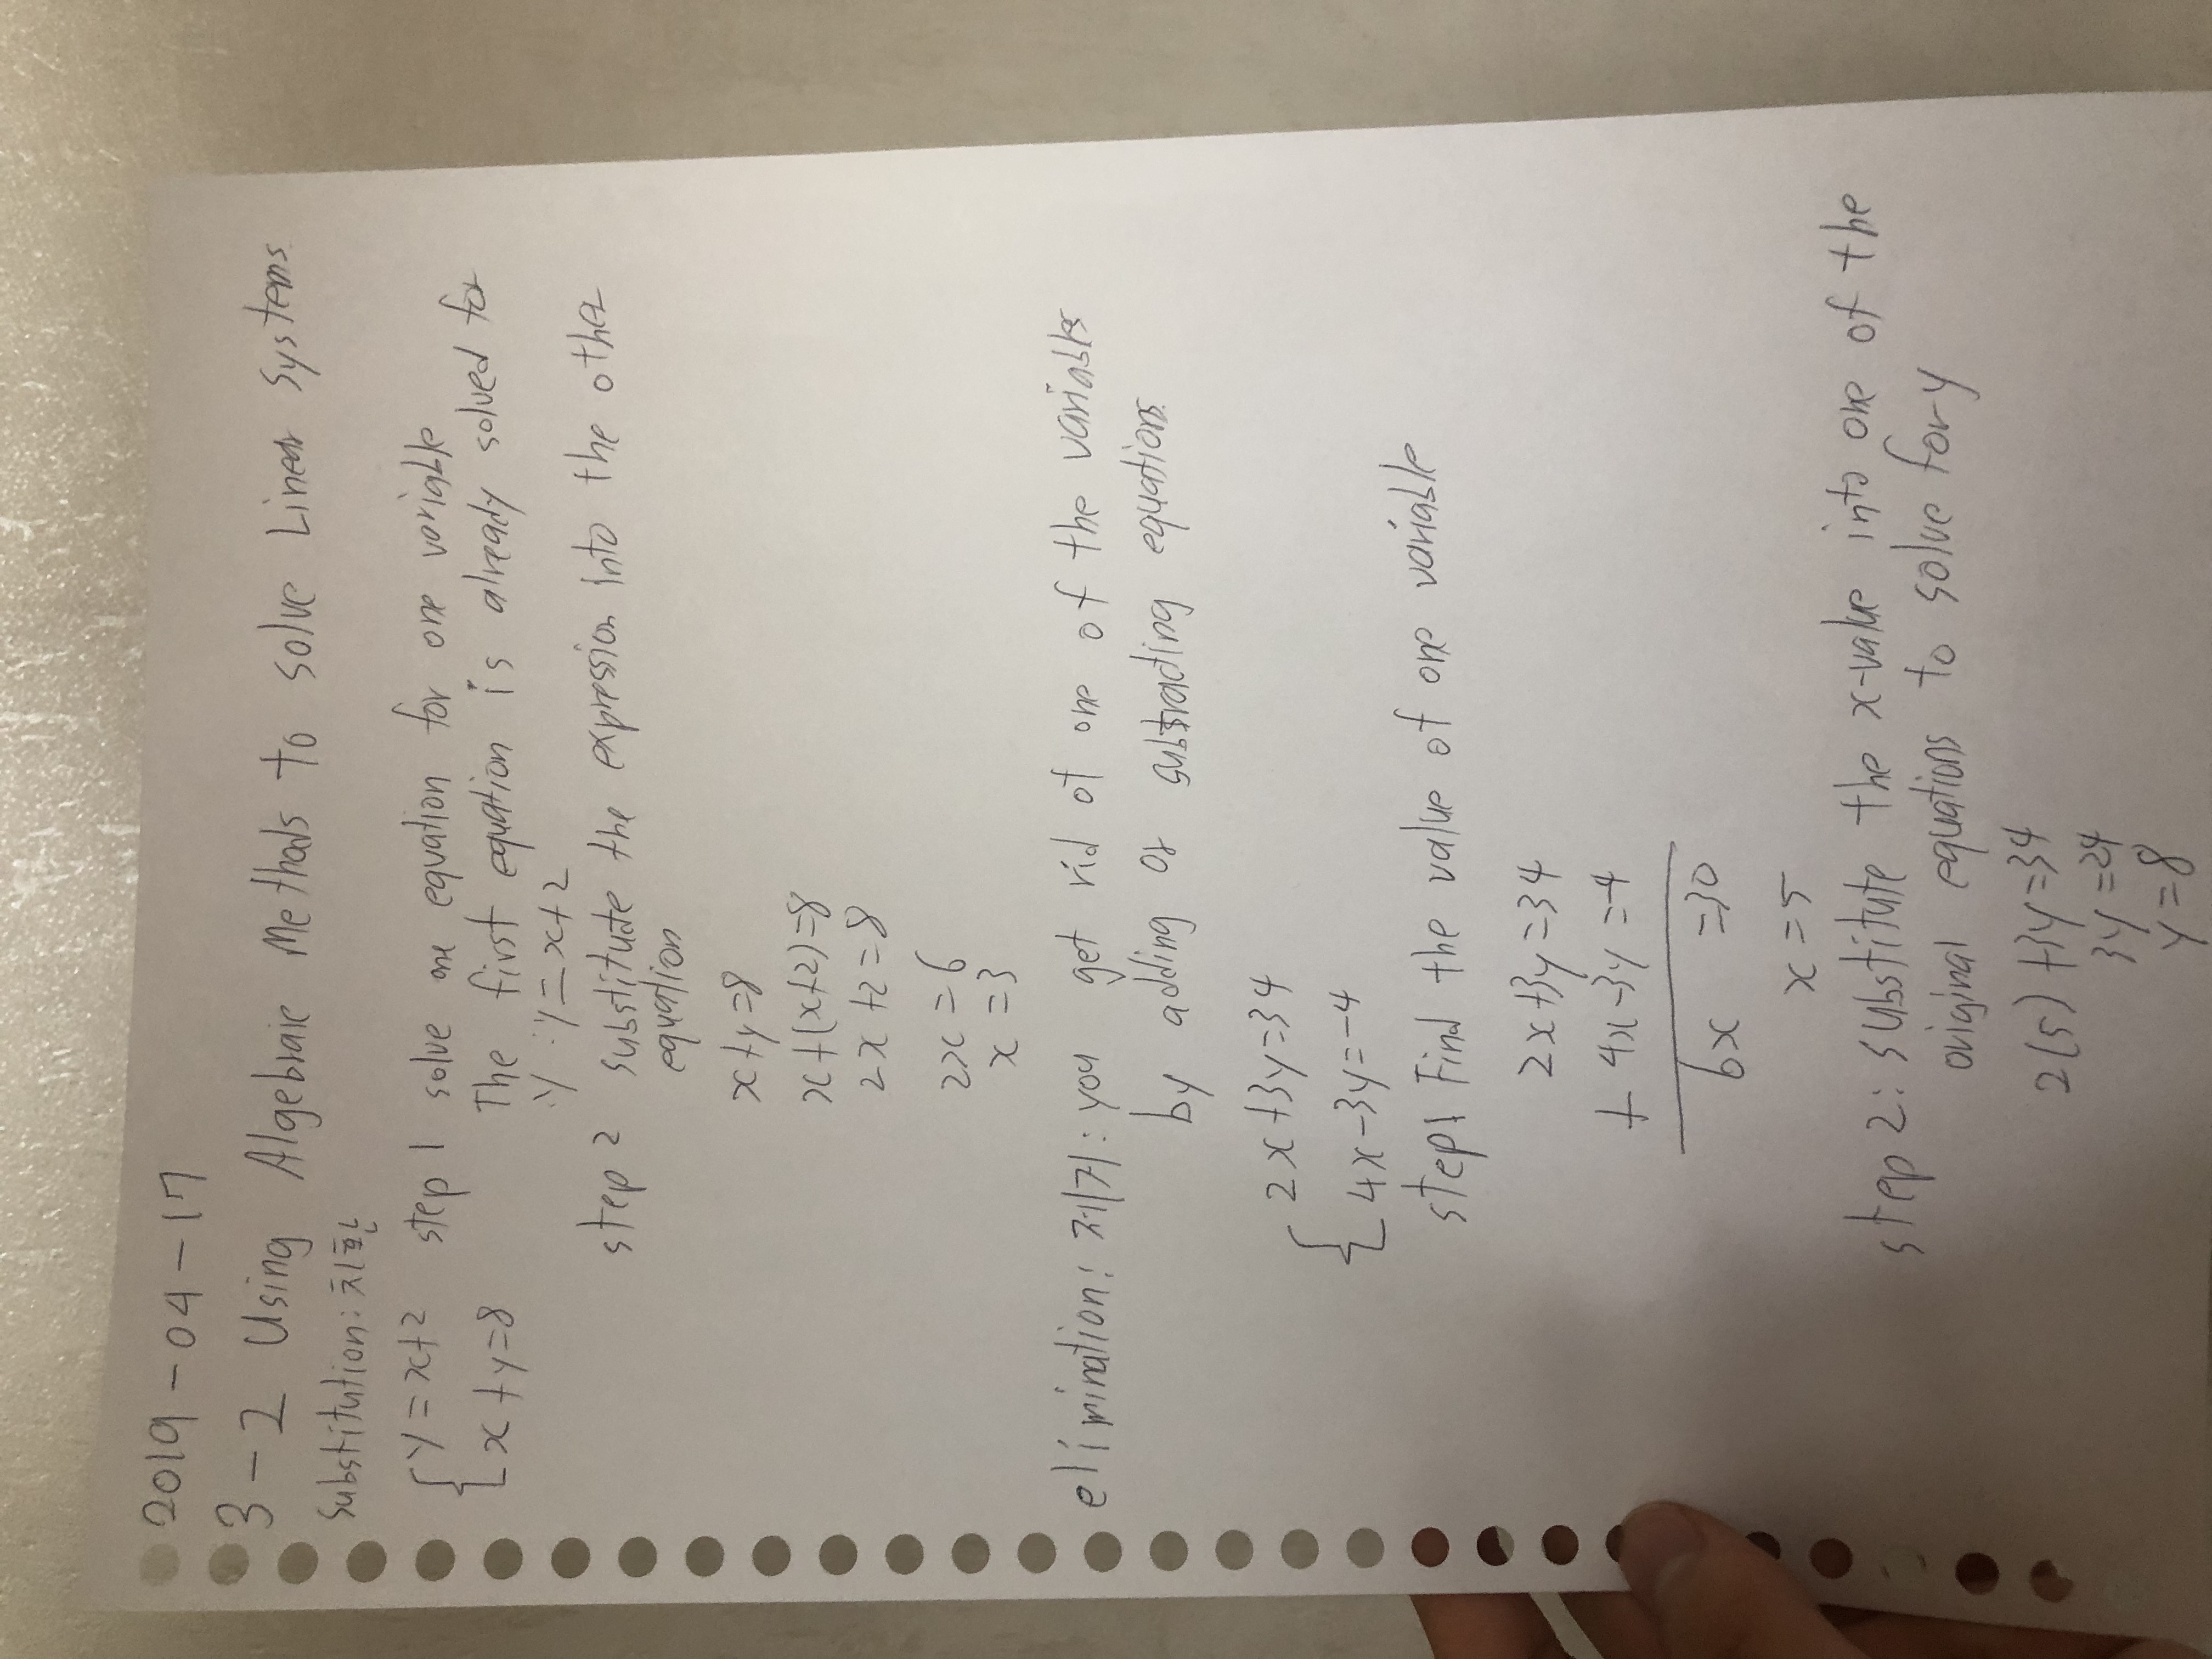 2019-04-17
3-2 Using Algebraic Methods to solve Linear Systems
Substitution: 치환
{y=x+2
x+y=8
step 1 solve one equation for one variable
The first equation is already solved for
y : y=x+2
step 2 substitude the expression into the other
equation
x+y=8
x+(x+2)=8
2x+2=8
2x=6
x=3
elimination: 제거: you get rid of one of the variables
by adding or substracting equations
{2x+3y=34
4x-3y=-4
step1 Find the value of one variable
2x+3y=34
+ 4x-3y=-4
6x =30
x=5
step 2: substitute the x-value into one of the
original equations to solve for y
2(5)+3y=34
3y=24
y=8